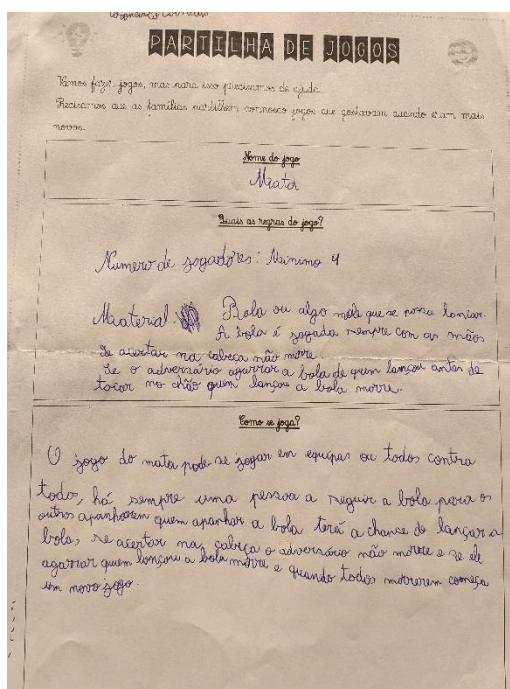 PARTILHA DE JOGOS
Vamos fazer jogos, mas para isso precisamos de ajuda.
Precisamos que as famílias partilhem connosco jogos que gostavam quando eram mais
novos.
Nome do jogo
Maata
Quais as regras do jogo?
Numero de jogadores: Minimo 4
Maaterial: Bola ou algo mole que se possa lançar.
A bola é jogada sempre com as mãos
Se acertar na cabeça não morre.
Se o adversário agarrar a bola de quem lançou antes de
tocar no chão quem lançou a bola morre.
Como se joga?
O jogo do mata pode se jogar em equipas ou todos contra
todo, há sempre uma pessoa a seguir a bola para os
outros apanharem quem apanhar a bola terá a chance de lançar a
bola, se acertar na cabeça o adversário não morre e se ele
agarrar quem lançou a bola morre e quando todos morrerem começa
um novo jogo.